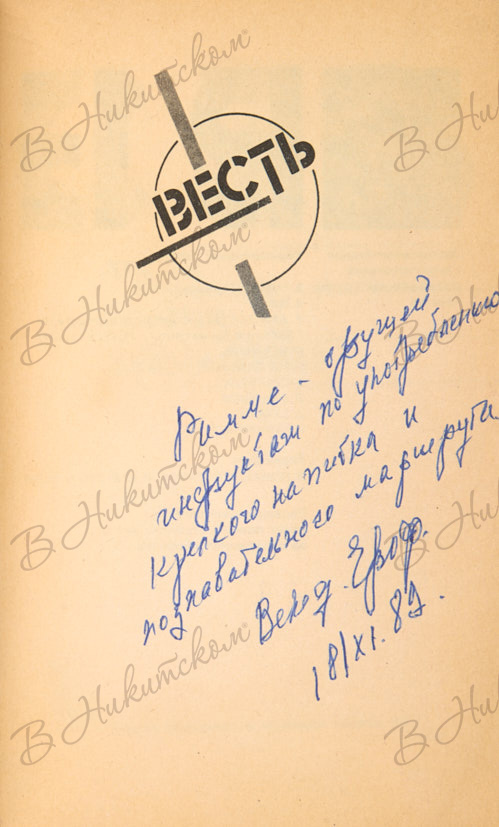 ВЕСТЬ
Римме –
инструктаж по употреблению
крепкого напитка и
познавательного маршрута
Венед. Ероф.
18/XI.89.
В Никитском
В Никитском
В Никитском
В Никитском
В Никитском
В Никитском
В Никитском
В Никитском